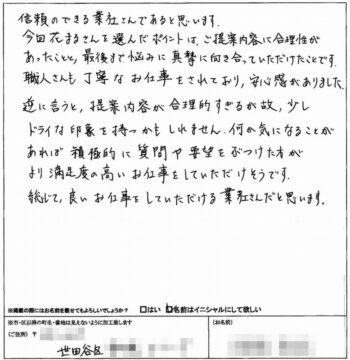 信頼のできる業者さんであると思います。
今回花まるさんを選んだポイントは、ご提案内容に合理性が
あったことと、最後まで悩みに真摯に向き合っていただけたことです。
職人さんも丁寧なお仕事をされており、安心感がありました。
逆に言うと、提案内容が合理的すぎるが故、少し
ドライな印象を持つかもしれません。何か気になることが
あれば積極的に質問や要望をぶつけた方が
より満足度の高いお仕事をしていただけそうです。
総じて、良いお仕事をしていただける業者さんだと思います。
※掲載の際にはお名前を載せてもよろしいでしょうか? □はい ☑名前はイニシャルにして欲しい
※市・区以降の町名・番地は見えないように加工致します
(ご住所) 〒
(お名前)
世田谷区